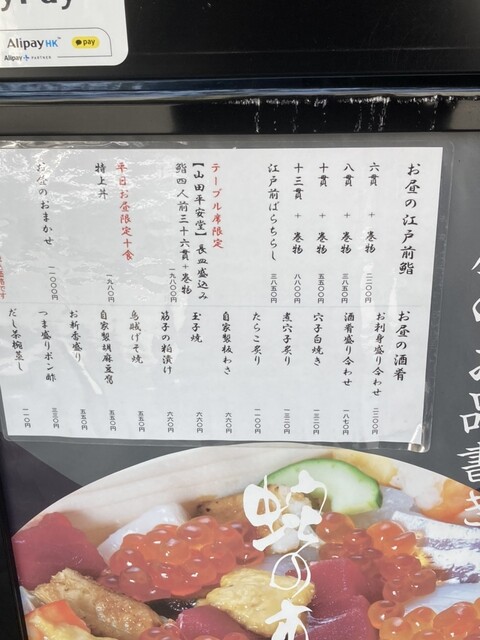 Pay
AlipayHK
pay
Alipay+ PARTNER
お昼の江戸前鮨
六貫 + 巻物 二二〇〇円
八貫 + 巻物 三八五〇円
十貫 + 巻物 五五〇〇円
十三貫 + 巻物 八八〇〇円
江戸前ばらちらし 三八五〇円
テーブル席限定
【山田平安堂】長皿盛込み
鮨四人前三十六貫+巻物 一九八〇〇円
平日お昼限定十食
特上丼 一九八〇円
おまかせ 一一〇〇〇円
お昼の酒肴
お刺身盛り合わせ 二二〇〇円
酒肴盛り合わせ 一八七〇円
穴子白焼き 一三二〇円
煮穴子炙り 一三二〇円
たらこ炙り 一一〇〇円
自家製板わさ 六六〇円
玉子焼 六六〇円
筋子の粕漬け 六六〇円
烏賊げそ焼 五五〇円
自家製胡麻豆腐 五五〇円
お新香盛り 五五〇円
つま盛りポン酢 三三〇円
だし茶椀蒸し 一一〇円
お品書き